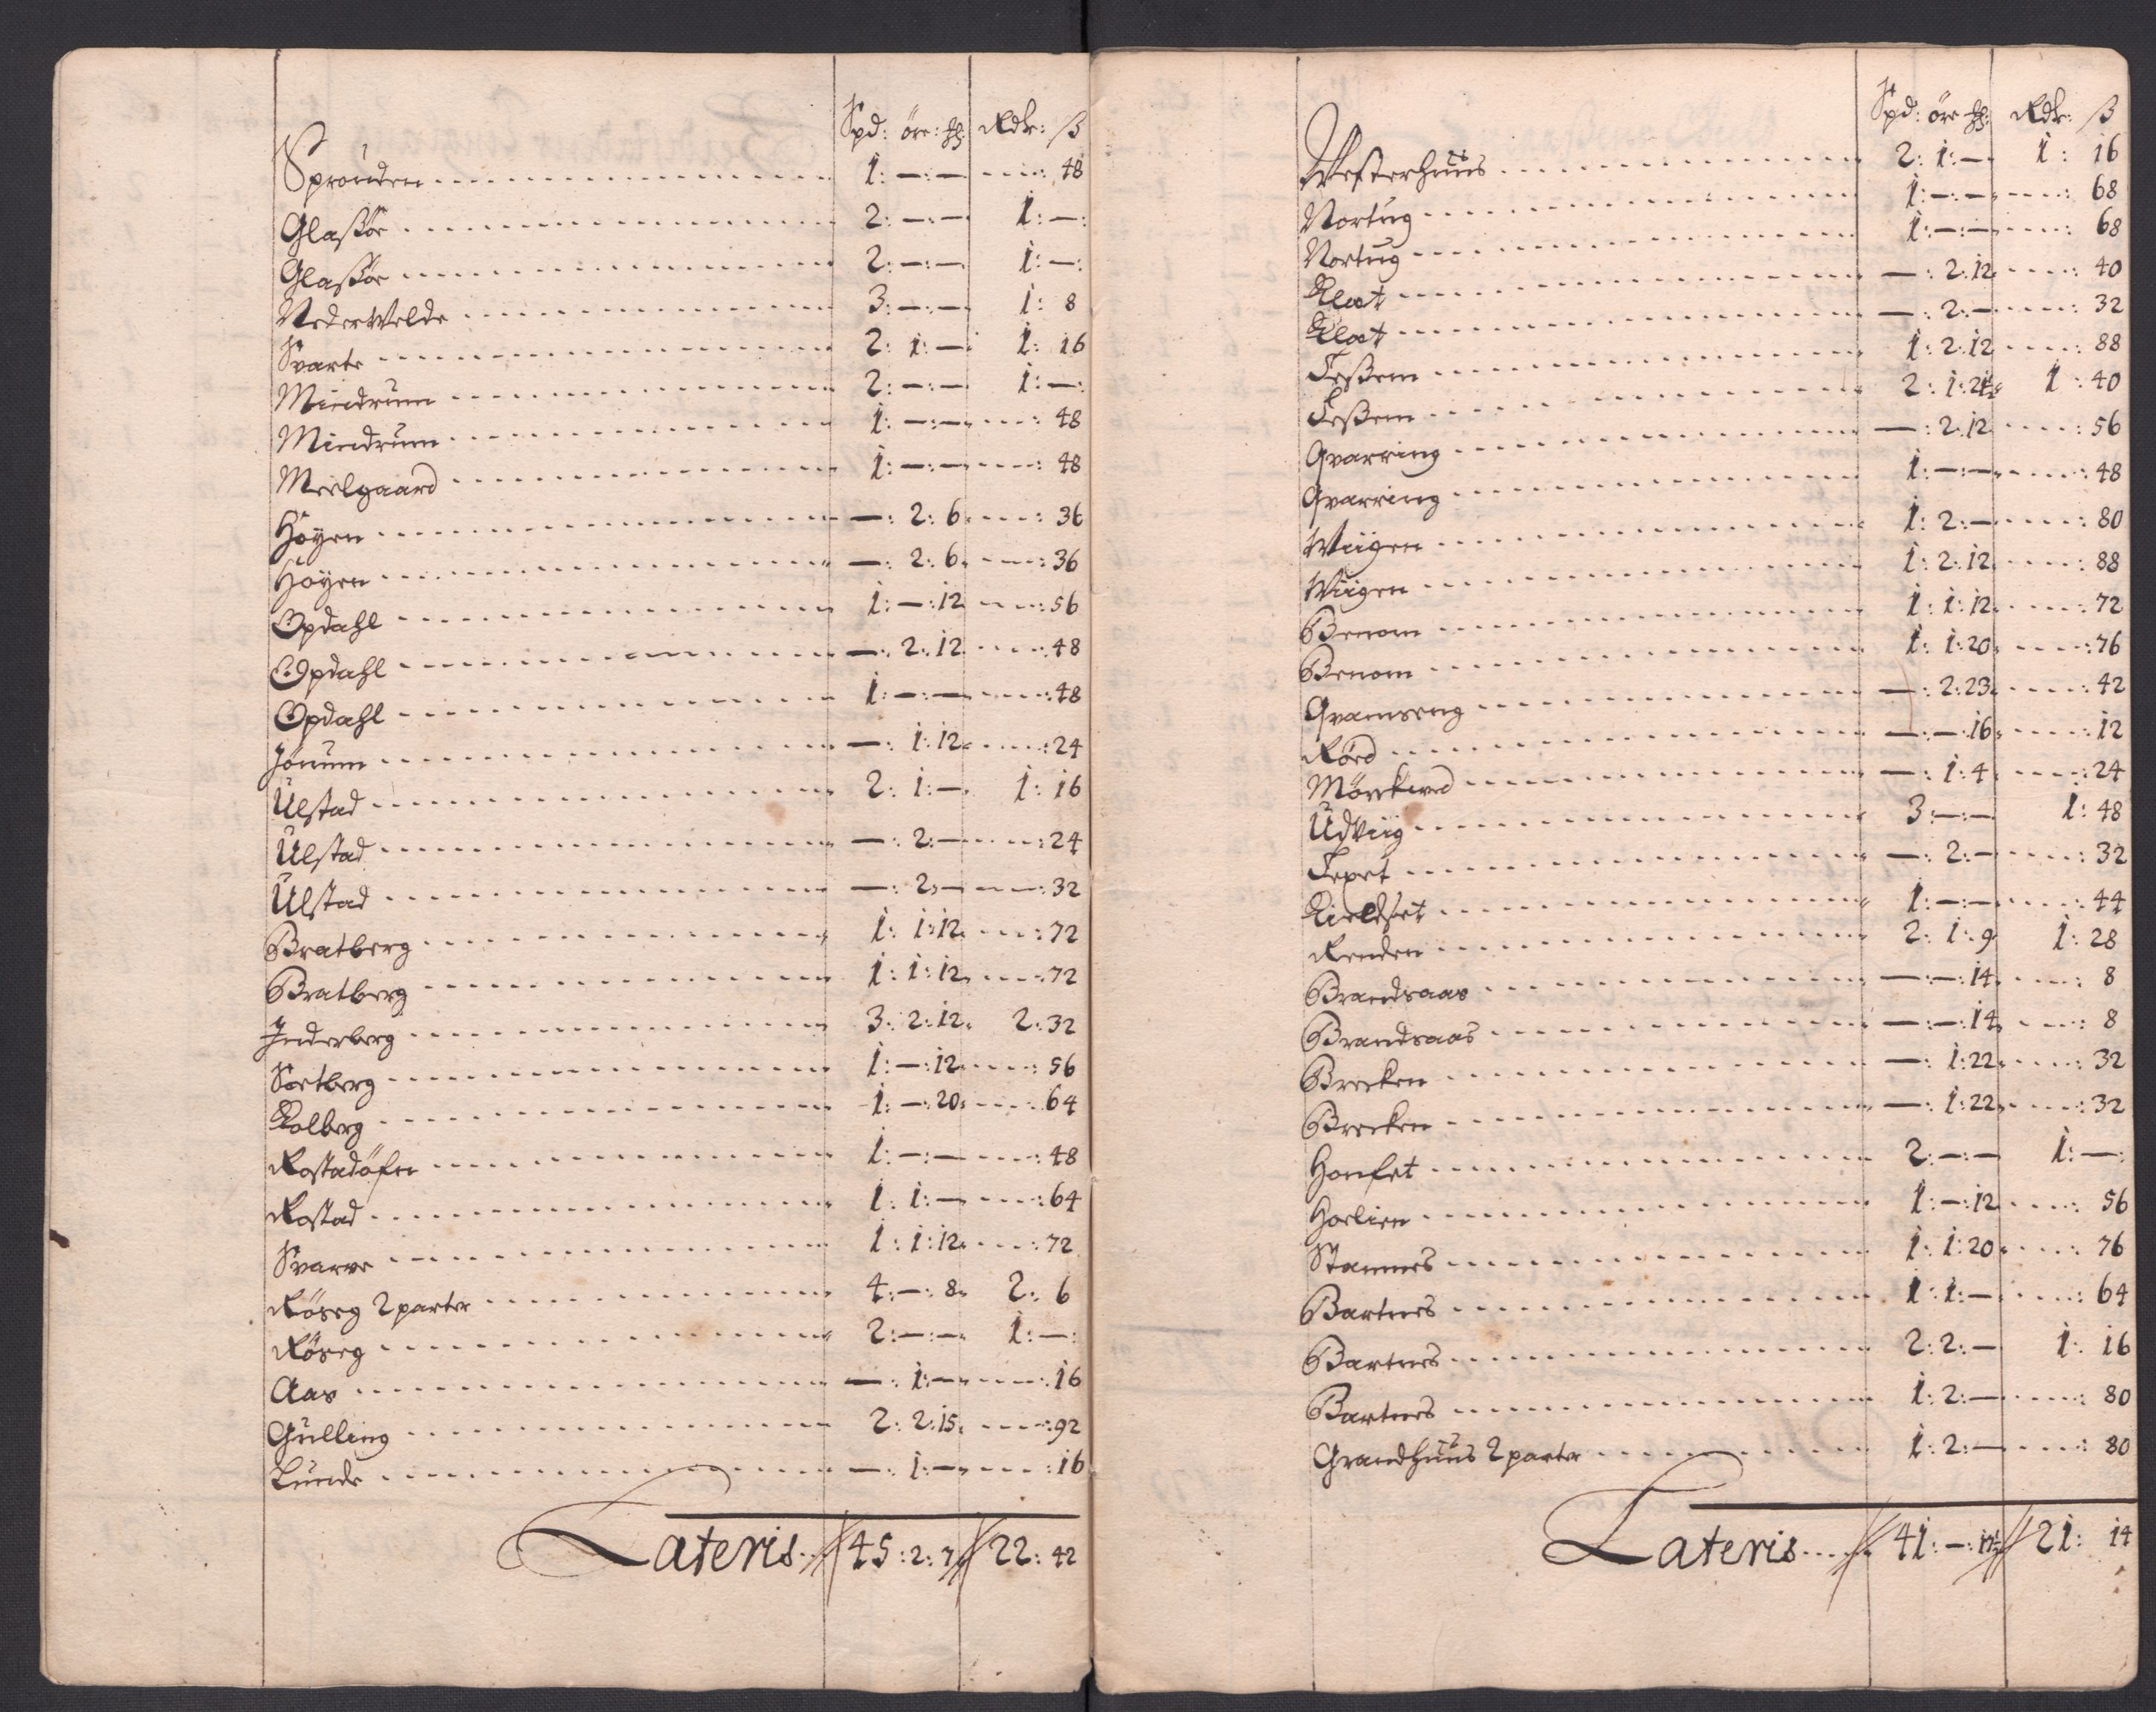 Spd: öre: Rdr: ß
Sprouden 1: —:— 48
Glaßör 2: —:— 1: —:
Glaßör 2: —:— 1: —:
Nederwelde 3: —:— 1: 8
Svarte 2: 1: — 1: 16
Mindrum 2: —:— 1: —:
Mindrum 1: —:— 48
Meelgaard 1: —:— 48
Höyen —: 2: 6 36
Höyen —: 2: 6 36
Opdahl 1: —: 12 56
Opdahl —: 2: 12 48
Opdahl 1: —:— 48
Jönum —: 1: 12 24
Ulstad 2: 1: — 1: 16
Ulstad —: 2: — 24
Ulstad —: 2: — 32
Bratberg 1: 1: 12 72
Bratberg 1: 1: 12 72
Inderberg 3: 2: 12 2: 32
Sortberg 1: —: 12 56
Kolberg 1: —: 20 64
Rostadöfen 1: —:— 48
Rostad 1: 1: — 64
Svarve 1: 1: 12 72
Röseg 2 parter 4: —: 8 2: 6
Röseg 2: —:— 1: —:
Aas —: 1: — 16
Gulling 2: 2: 15 92
Lunde —: 1: — 16
Lateris 45: 2: 7 22: 42
Spd: öre Rdr: ß
Westerhuus 2: 1: — 1: 16
Nortug 1: —:— 68
Nortug 1: —:— 68
Klæt —: 2: 12 40
Klæt —: 2: — 32
Teßem 1: 2: 12 88
Teßem 2: 1: 21 1: 40
Qvarring —: 2: 12 56
Qvarring 1: —:— 48
Wiigen 1: 2: — 80
Wiigen 1: 2: 12 88
Benom 1: 1: 12 72
Benom 1: 1: 20 76
Qvamseng —: 2: 23 42
Rörd —:—: 16 12
Mörckved —: 1: 4 24
Udviig 3: —:— 1: 48
Tepet —: 2: — 32
Kieldset 1: —:— 44
Renden 2: 1: 9 1: 28
Brandsaas —:—: 14 8
Brandsaas —:—: 14 8
Brecken —: 1: 22 32
Brecken —: 1: 22 32
Honset 2: —:— 1: —:
Horlien 1: —: 12 56
Stamnes 1: 1: 20 76
Bartnes 1: 1: — 64
Bartnes 2: 2: — 1: 16
Bartnes 1: 2: — 80
Grandhuus 2 parter 1: 2: — 80
Lateris 41: —: 21: 14